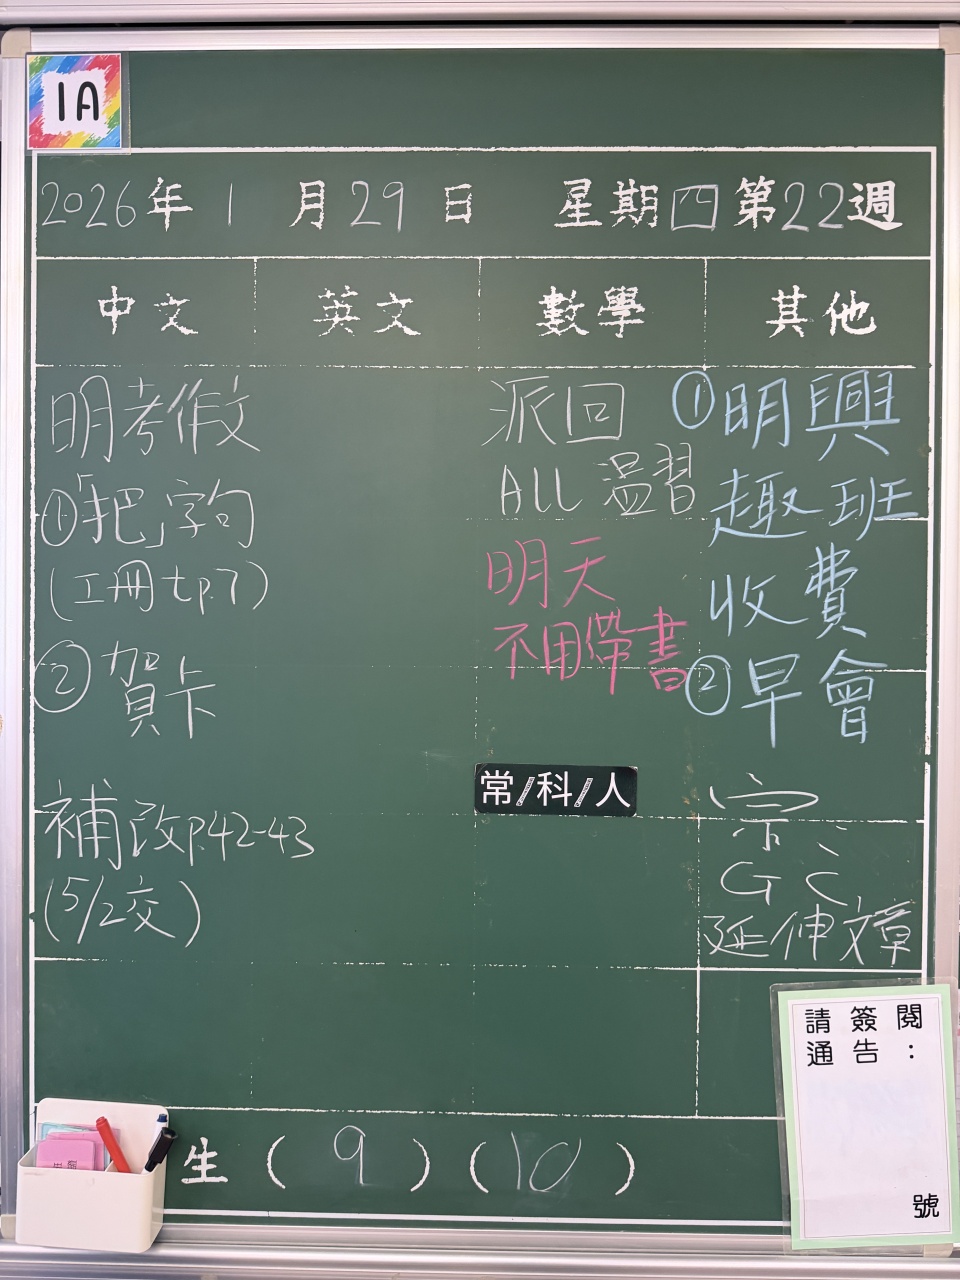 1A
2026年1月29日 星期四第22週
中文 英文 數學 其他
明考作文
①「把」字句
(工冊tp.7)
②賀卡
補改p.42-43
(5/2交)
派回
ALL 溫習
明天
不用帶書
常/科/人
①明興
趣班
收費
②早會
宗
GC
延伸文章
請簽閱
通告：
號
生(9)(10)